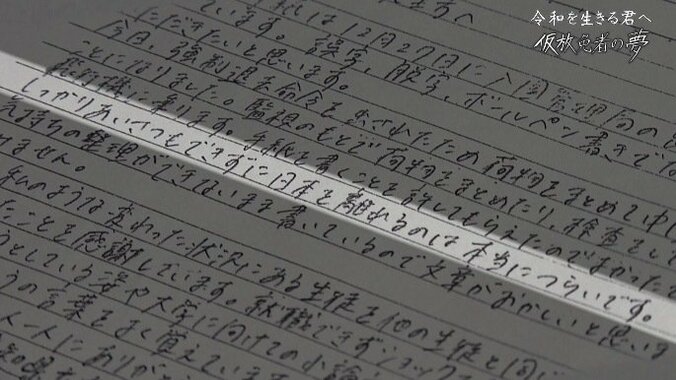 令和を生きる君へ
仮放免者の夢
私は12月27日に入国管理局の
ただきたいと思います。誤字、脱字、ボールペン書きでは
今日、強制退去命令を出されたため荷物をまとめて
ことになりました。監視のもとで荷物をまとめたり、検査をし
飛行機に乗ります。手紙を書くことを許してもらえたのでよかった
しっかりあいさつもできずに日本を離れるのは本当につらいです。
気持ちの整理ができないまま書いているので文章がおかしいと思い
ません。
私のような変わった状況にある生徒を他の生徒と同じ
たことを感謝しています。就職できずショック
うとしている姿や大学に向けての小論
の言葉をよく覚えています
一人一人にありが